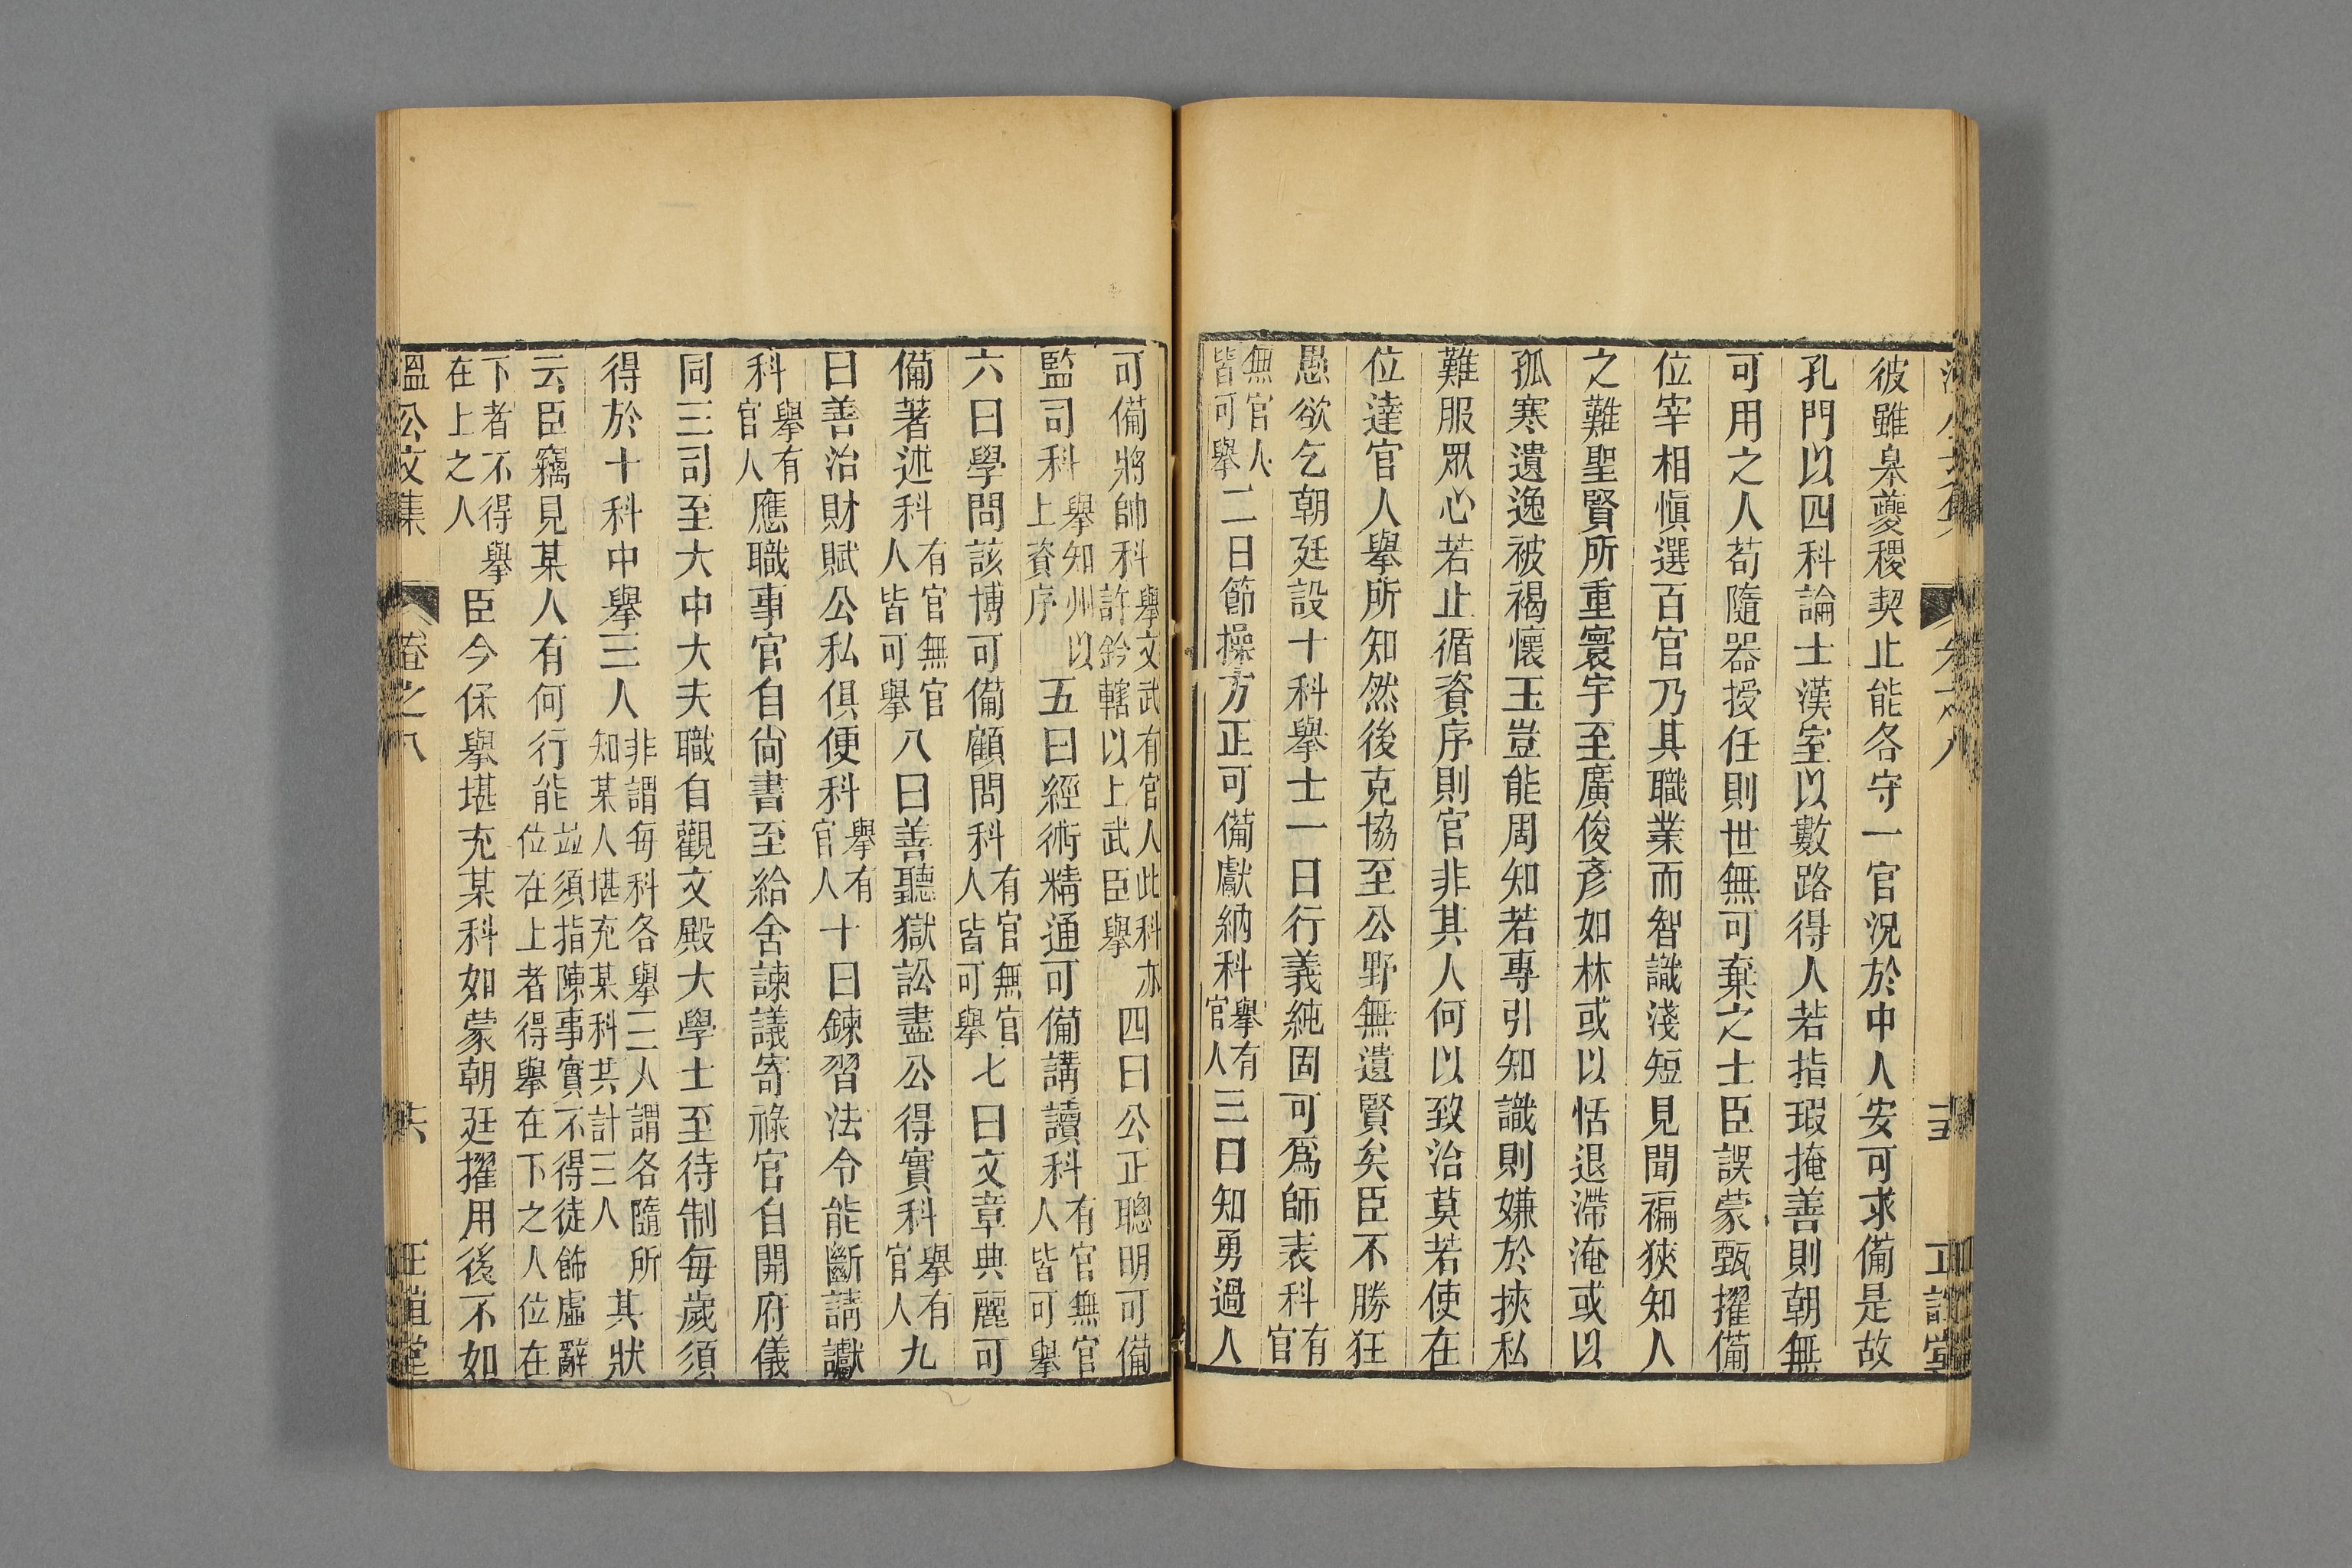 彼雖皋夔稷契止能各守一官況於中人安可求備是故
孔門以四科論士漢室以數路得人若指瑕掩善則朝無
可用之人苟隨器授任則世無可棄之士臣誤蒙甄擢備
位宰相慎選百官乃其職業而智識淺短見聞褊狹知人
之難聖賢所重寰宇至廣俊彥如林或以恬退滯淹或以
孤寒遺逸被褐懷玉豈能周知若專引知識則嫌於挾私
難服眾心若止循資序則官非其人何以致治莫若使在
位達官人舉所知然後克協至公野無遺賢矣臣不勝狂
愚欲乞朝廷設十科舉士一曰行義純固可爲師表科有官
無官人皆可舉二曰節操方正可備獻納科舉有官人三曰知勇過人
可備將帥科舉文武有官人此科亦許鈐轄以上武臣舉四曰公正聰明可備
監司科舉知州以上資序五曰經術精通可備講讀科有官無官人皆可舉
六曰學問該博可備顧問科有官無官人皆可舉七曰文章典麗可
備著述科有官無官人皆可舉八曰善聽獄訟盡公得實科舉有官人九
曰善治財賦公私俱便科舉有官人十曰鍊習法令能斷請讞
科舉有官人應職事官自尙書至給舍諫議寄祿官自開府儀
同三司至大中大夫職自觀文殿大學士至待制每歲須
得於十科中舉三人非謂每科各舉三人謂各隨所知某人堪充某科共計三人其狀
云臣竊見某人有何行能並須指陳事實不得徒飾虛辭位在上者得舉在下之人位在
下者不得舉在上之人臣今保舉堪充某科如蒙朝廷擢用後不如
溫公文集 卷之八